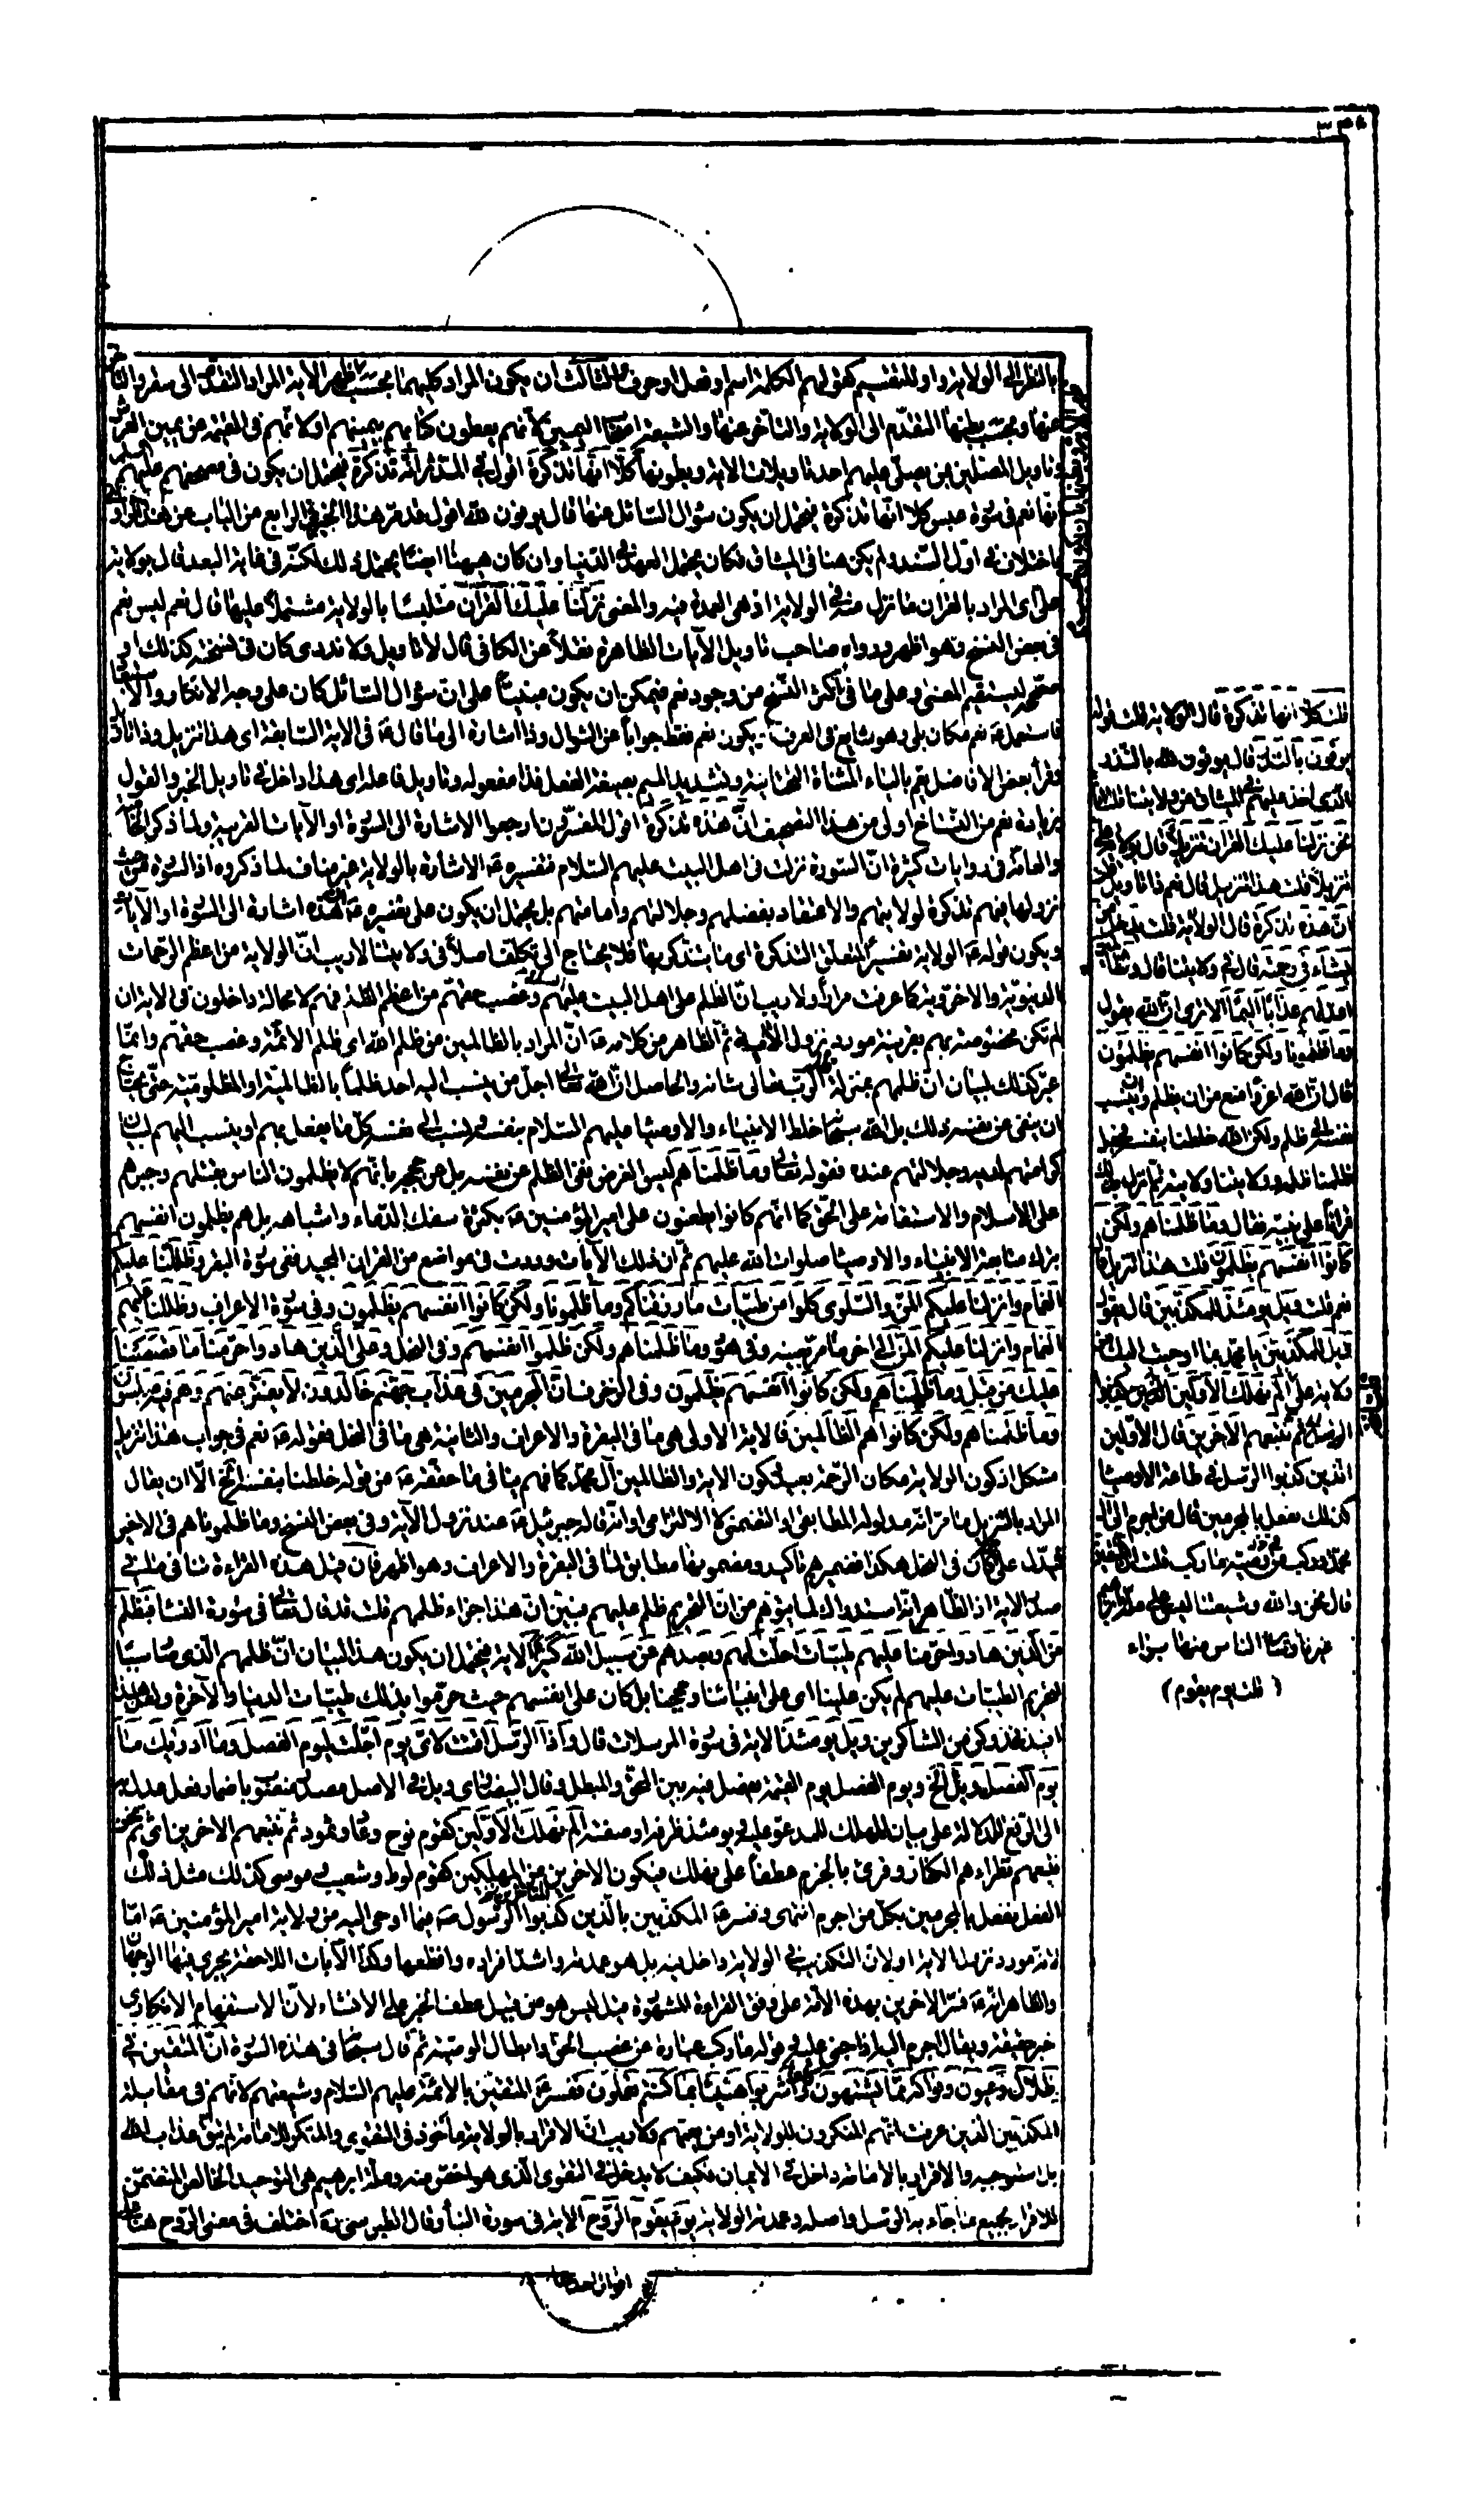 بالنظر الى الولاية واو للتقسيم كقولهم الكلمة اسم وفعل او حرف الثالث ان يكون المراد كليهما بحسب ظهر الآية المراد التقدم الى سقر والتأخر
عنها وبحسب بطنها التقدم الى الولاية والتأخر عنها والشيعة اصحاب اليمين لأنهم يعطون كتابهم بيمينهم او لأنهم في القيمة عن يمين العرش
وتاويل المصلين بمن يصلى عليهم احد تاويلات الآية وبطونها كلا انها تذكرة اقول في المدثر انه تذكرة فيحتمل ان يكون في مصحفهم عليهم السلم
انها نعم في سورة عبس كلا انها تذكرة فيحتمل ان يكون سؤال السائل عنها قال يوفون لله اقول قد مر هذا الجزء في الرابع من الباب عن هذا الراوى
باختلاف في اول السند ولم يكن هنا في الميثاق فكان يحتمل العهد في الدنيا وان كان هيهنا ايضا يحتمل ذلك لكنه في غاية البعد قال بولاية
على اى المراد بالقران ما نزل منه في الولاية اذ هى العمدة فيه والمعنى نزلنا عليك القرآن متلبسا بالولاية مشتملا عليها قال نعم ليس نعم
في بعض النسخ وهو اظهر ورواه صاحب تاويل الآيات الظاهرة نقلا عن الكافى قال لا تاويل ولا ندرى كان في نسخته كذلك او
صححه ليستقيم المعنى وعلى ما في اكثر النسخ من وجود نعم فيمكن ان يكون مبنيا على ان سؤال السائل كان على وجه الانكار والاستبعاد
فاستعمل ع نعم مكان بلى وهو شايع في العرف او يكون نعم فقط جوابا عن السؤال وذا اشارة الى ما قال ع في الآية السابقة اى هذا تنزيل وذا تاويل
وقرأ بعض الافاضل يعم بالياء المثناة التحتانية وتشديد الميم بصيغة الفعل فذا مفعوله وتاويل فاعله اى هذا داخل في تاويل الخبر والقول
بزيادة نعم من النساخ اولى من هذا التصحيف ان هذه تذكرة اقول المفسرون ارجعوا الاشارة الى السورة او الآيات القريبة ولما ذكر الخاصة
والعامة في روايات كثيرة ان السورة نزلت في اهل البيت عليهم السلام فتفسيره ع الاشارة بالولاية غير مناف لما ذكروه اذ السورة من حيث
نزولها فيهم تذكرة لولايتهم والاعتقاد بفضلهم وجلالتهم وامامتهم بل يحتمل ان يكون على تفسيره ع هذه اشارة الى السورة او الآيات
ويكون قوله ع الولاية تفسيرا لمتعلق التذكرة اى ما يتذكر بها فلا يحتاج الى تكلف اصلا في ولايتنا لا ريب ان الولاية من اعظم الرحمات
الدنيوية والاخروية كما عرفت مرارا ولا ريب ان الظلم على اهل البيت عليهم السلم وغصب حقهم من اعظم الظلم فهم لا محالة داخلون في الآية ان
لم تكن مخصوصة بهم بقرينة مورد نزول الآية ثم الظاهر من كلامه ع ان المراد بالظالمين من ظلم الله اى ظلم الائمة وغصب حقهم وانما
عبر كذلك لبيان ان ظلمهم بمنزلة ظلم الرب تعالى شانه والحاصل ان الله تعالى اجل من ينسب اليه احد ظلما بالظالمية او المظلومية حتى يحتاج
ان ينفى عن نفسه ذلك بل الله سبحانه خلط الانبياء والاوصياء عليهم السلام بنفسه ونسب الى نفسه كل ما يفعل بهم او ينسب اليهم لبيان
كرامتهم لديه وجلالتهم عنده فقوله تعالى وما ظلمناهم ليس الغرض نفى الظلم عن نفسه بل عن حججه بانهم لا يظلمون الناس بقتلهم وجبرهم
على الاسلام والاستقامة على الحق كما انهم كانوا يطعنون على امير المؤمنين ع بكثرة سفك الدماء واشباهه بل هم يظلمون انفسهم
بترك متابعة الانبياء والاوصياء صلوات الله عليهم ثم ان تلك الآيات وردت في مواضع من القران المجيد ففى سورة البقرة وظللنا عليكم
الغمام وانزلنا عليكم المن والسلوى كلوا من طيبات ما رزقناكم وما ظلمونا ولكن كانوا انفسهم يظلمون وفي سورة الاعراف وظللنا عليهم
الغمام وانزلنا عليكم المن الى اخر ما مر بعينه وفي هود وما ظلمناهم ولكن ظلموا انفسهم وفي النحل وعلى الذين هادوا حرمنا ما قصصنا
عليك من قبل وما ظلمناهم ولكن كانوا انفسهم يظلمون وفي الزخرف ان المجرمين في عذاب جهنم خالدون لا يفتر عنهم وهم فيه مبلسون
وما ظلمناهم ولكن كانوا هم الظالمين فالآية الاولى هى ما في البقرة والاعراف والثانية هى ما في النحل فقوله ع نعم في جواب هذا تنزيل
مشكل اذ كون الولاية مكان الرحمة بعيد وكون الآية والظالمين آل محمد كما فهم ينافى ما حققه ع من قوله خلطنا بنفسه الخ الا ان يقال
المراد بالتنزيل ما مر انه مدلوله المطابقى او التضمنى لا الالتزامى او انه قال جبرئيل ع عند نزول الآية وفي بعض النسخ وما ظلمونا هم في الاخير
فيدل على انه كان في النحل هكذا فضمير هم تاكيد ومضمونها مطابق لما في البقرة والاعراف وهو اظهر فان قيل هذه القراءة تنافى ما في
صدر الآية اذ الظاهر انه استدراك لما يتوهم من ان التحريم ظلم عليهم فبين ان هذا جزاء ظلمهم قلت قد قال تعالى في سورة النساء فبظلم
من الذين هادوا حرمنا عليهم طيبات احلت لهم وبصدهم عن سبيل الله كثيرا الآية فيحتمل ان يكون هذا لبيان ان ظلمهم الذى صار سببا
لتحريم الطيبات عليهم لم يكن علينا اى على انبيائنا وحججنا بل كان على انفسهم حيث حرموا بذلك طيبات الدنيا والآخرة
فخذ وكن من الشاكرين ويل يومئذ الآية في سورة المرسلات قال واذا الرسل اقتت لاى يوم اجلت ليوم الفصل وما ادريك ما
يوم الفصل ويل الخ ويوم الفصل يوم القيمة يفصل فيه بين المحق والمبطل وقال البيضاوى ويل في الاصل مصدر منصوب باضمار فعل عدل به
الى الرفع للدلالة على ثبات الهلك للمدعو عليه ويومئذ ظرفه او صفته الم نهلك الاولين كقوم نوح وعاد وثمود ثم نتبعهم الاخرين اى ثم نحن
نتبعهم نظراءهم الكفار وقرئ بالجزم عطفا على نهلك فيكون الاخرين المتاخرين من المهلكين كقوم لوط وشعيب وموسى كذلك مثل ذلك
الفعل نفعل بالمجرمين بكل من اجرم انتهى وفسر ع المكذبين بالذين كذبوا الرسول ص فيما اوحى اليه من ولاية امير المؤمنين ع اما
لانه مورد نزول الآية او لان التكذيب في الولاية داخل فيه بل هو عمدته واشد افراده وافظعها وكذا الآيات اللاحقة يجرى فيها الوجهان
والظاهر انه ع فسر الاخرين بهذه الامة على وفق القراءة المشهورة قيل ليس هو من قبيل عطف الخبر على الانشاء لان الاستفهام الانكارى
خبر حقيقة ويقال اجرم اليه اذا جنى عليه وقوله ما ركب عبارة عن غصب الحق وابطال الوصية ثم قال سبحانه في هذه السورة ان المتقين في
ظلال وعيون وفواكه مما يشتهون كلوا واشربوا هنيئا بما كنتم تعملون ففسر ع المتقين بالائمة عليهم السلام وشيعتهم لانهم في مقابلة
المكذبين الذين عرفت انهم المنكرون للولاية ومن يعمهم ولا ريب ان الاقرار بالولاية ماخوذ في التقوى والمنكر للامامة لم يتق عذاب الله
بل استوجبه والاقرار بالامامة داخل في الايمان فكيف لا يدخل في التقوى الذى هو اخص منه وملة ابراهيم هى التوحيد الخالص المتضمن
للاقرار بجميع ما جاء به الرسل واصله وعمدته الولاية يوم يقوم الروح الآية في سورة النبأ وقال الطبرسى ره اختلف في معنى الروح هنا على
اقوال احدها
قلت كلا انها تذكرة قال الولاية قلت قوله
يوفون بالنذر قال يوفون لله بالنذر
الذى اخذ عليهم في الميثاق من ولايتنا قلت انا
نحن نزلنا عليك القران تنزيلا قال بولاية على
تنزيلا قلت هذا تنزيل قال نعم ذا تاويل قلت
ان هذه تذكرة قال الولاية قلت يدخل من
يشاء في رحمته قال في ولايتنا قال والظالمين
اعد لهم عذابا اليما الا ترى ان الله يقول
وما ظلمونا ولكن كانوا انفسهم يظلمون
قال ان الله اعز وامنع من ان يظلم وان ينسب
نفسه الى ظلم ولكن الله خلطنا بنفسه فجعل
ظلمنا ظلمه وولايتنا ولايته ثم انزل بذلك
قرانا على نبيه فقال وما ظلمناهم ولكن
كانوا انفسهم يظلمون قلت هذا تنزيل قال
نعم قلت ويل يومئذ للمكذبين قال يقول
ويل للمكذبين يا محمد بما اوحيت اليك من
ولاية على الم نهلك الاولين ثم
نتبعهم الآخرين قال الاولين
الذين كذبوا الرسل في طاعة الاوصياء
كذلك نفعل بالمجرمين قال من اجرم الى آل
محمد وركب من وصيه ما ركب قلت ان المتقين
قال نحن والله وشيعتنا ليس على ملة ابرهيم
غيرنا وسائر الناس منها براء
(قلت يوم يقوم)